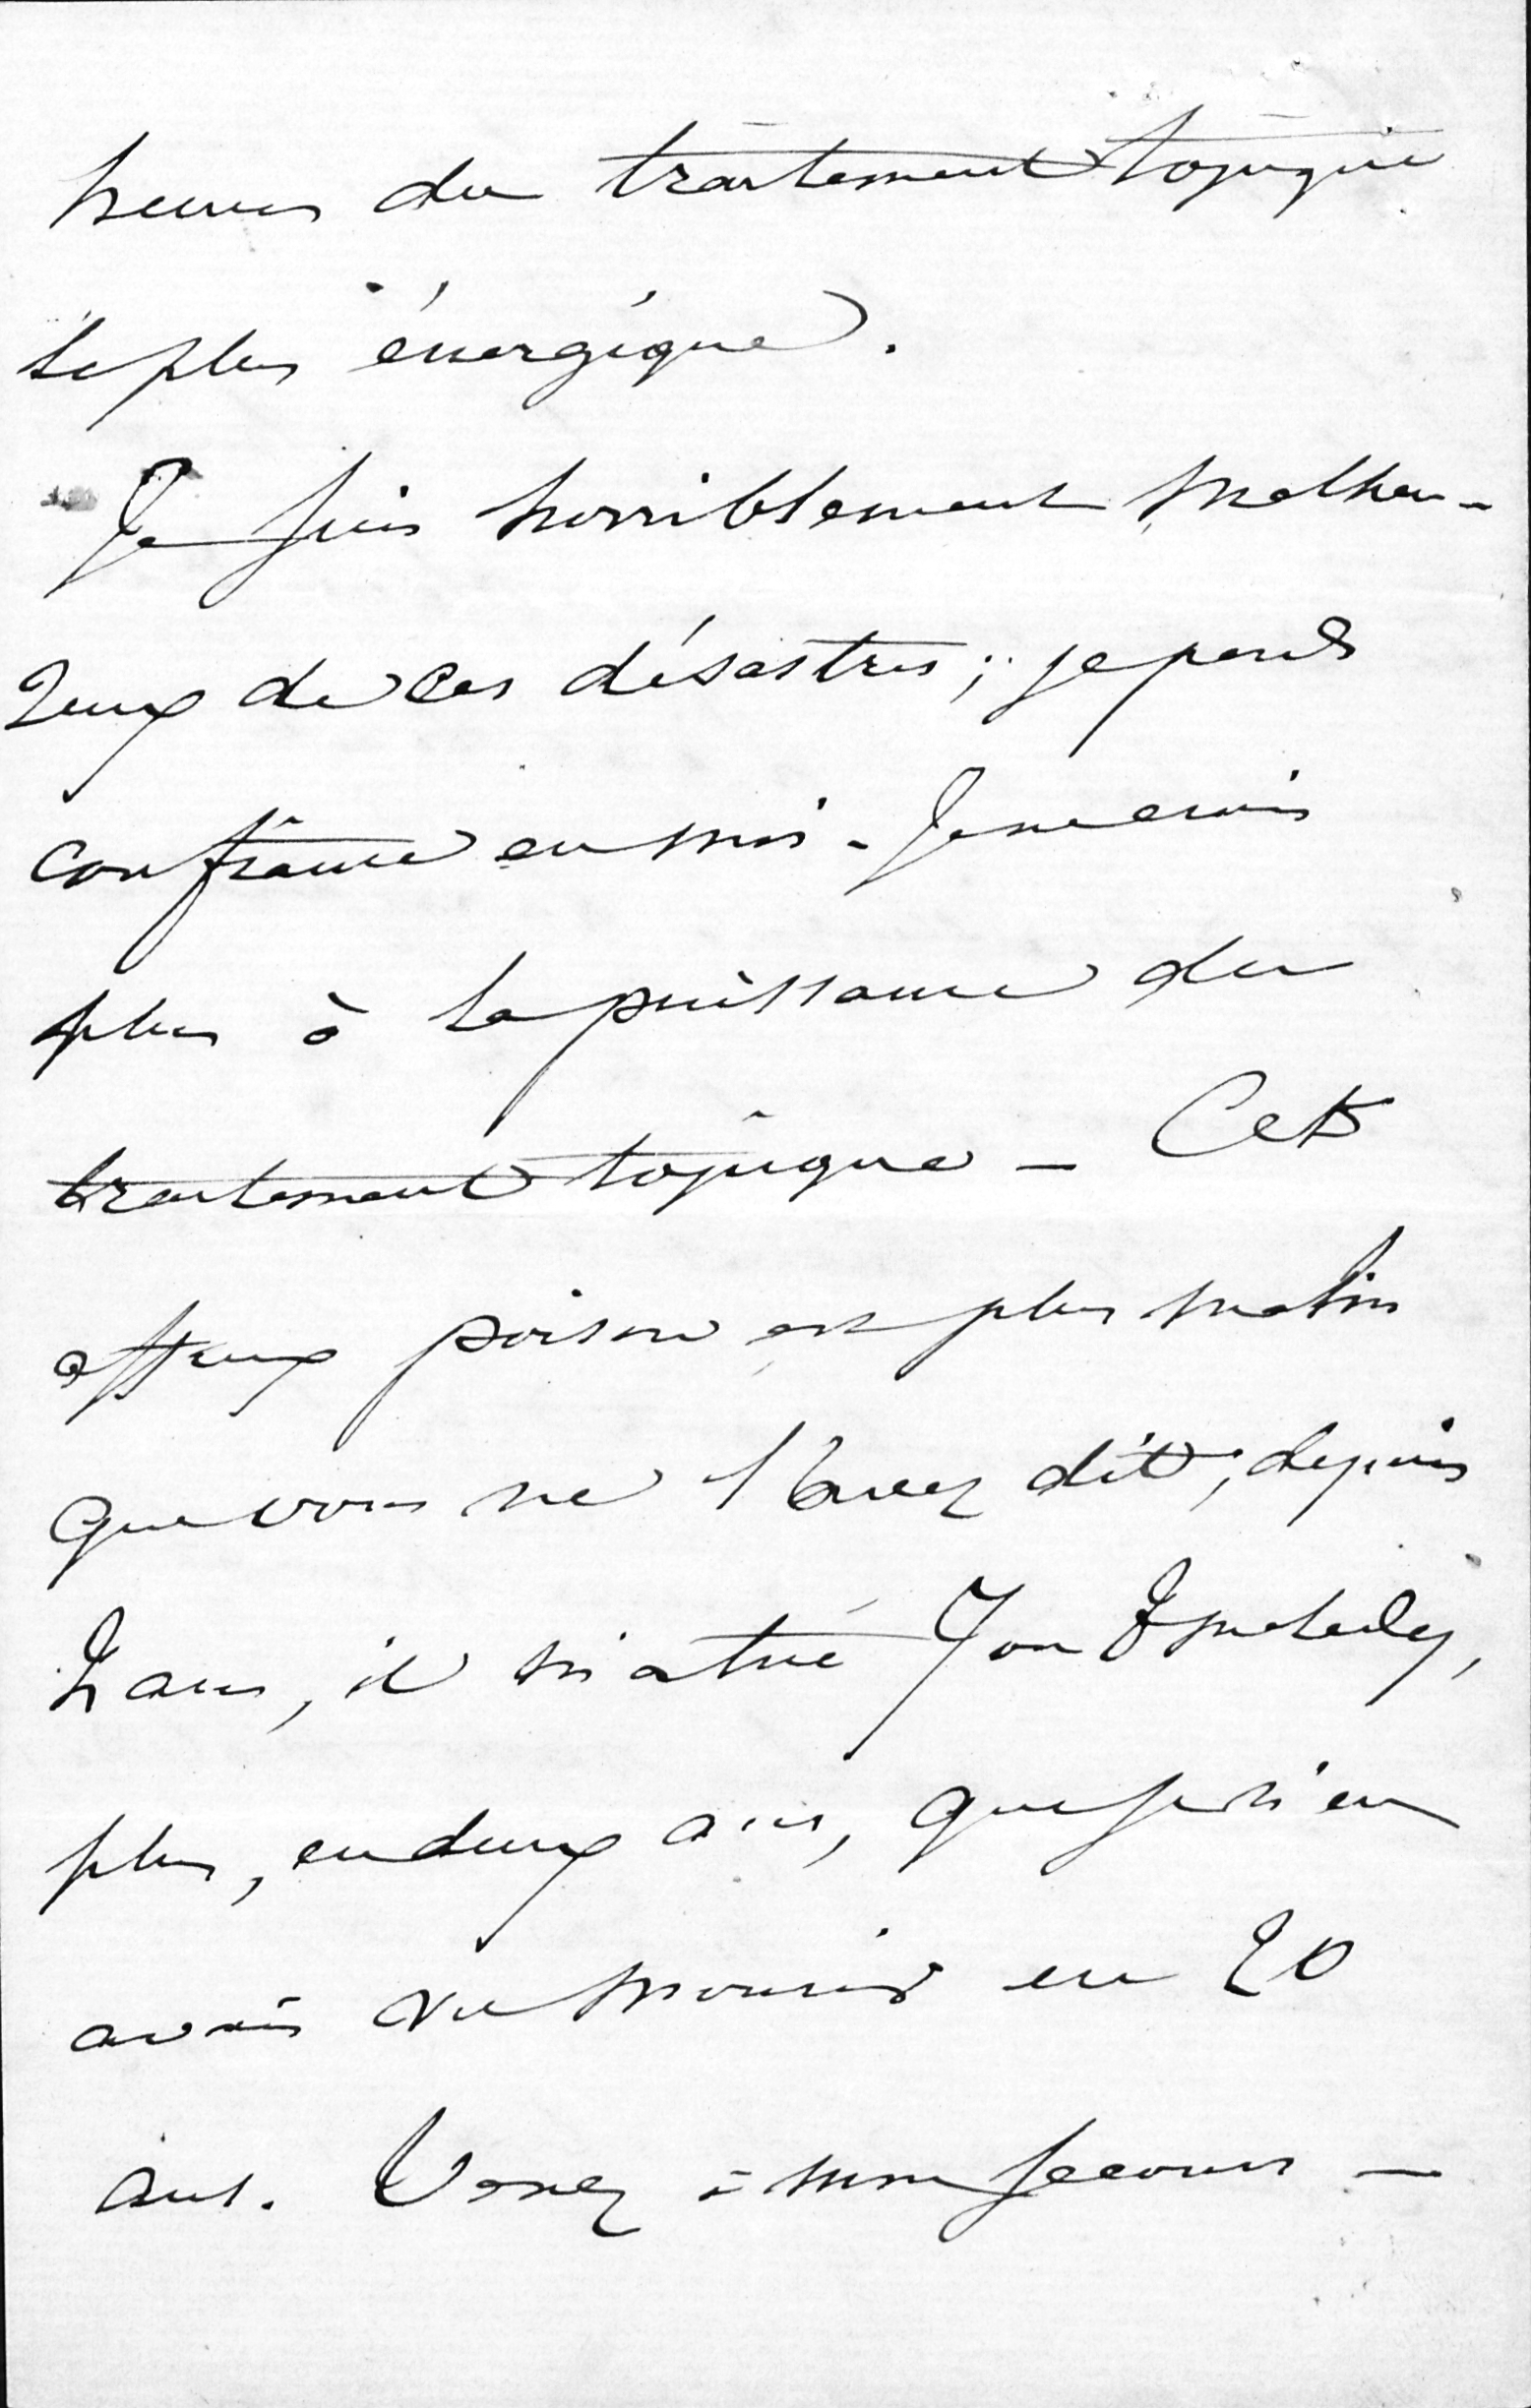 heures du traitement topique
le plus énergique.
Je suis horriblement malheu-
reux de ces désastres ; je perds
confiance en moi - Je ne crois
plus à la puissance du
traitement topique - Cet
affreux poison est plus malin
que vous ne l'avez dit ; depuis
2 ans, il m'a tué malades,
plus, en deux ans, que je n'en
avais vu mourir en 20
ans. Venez à mon secours -